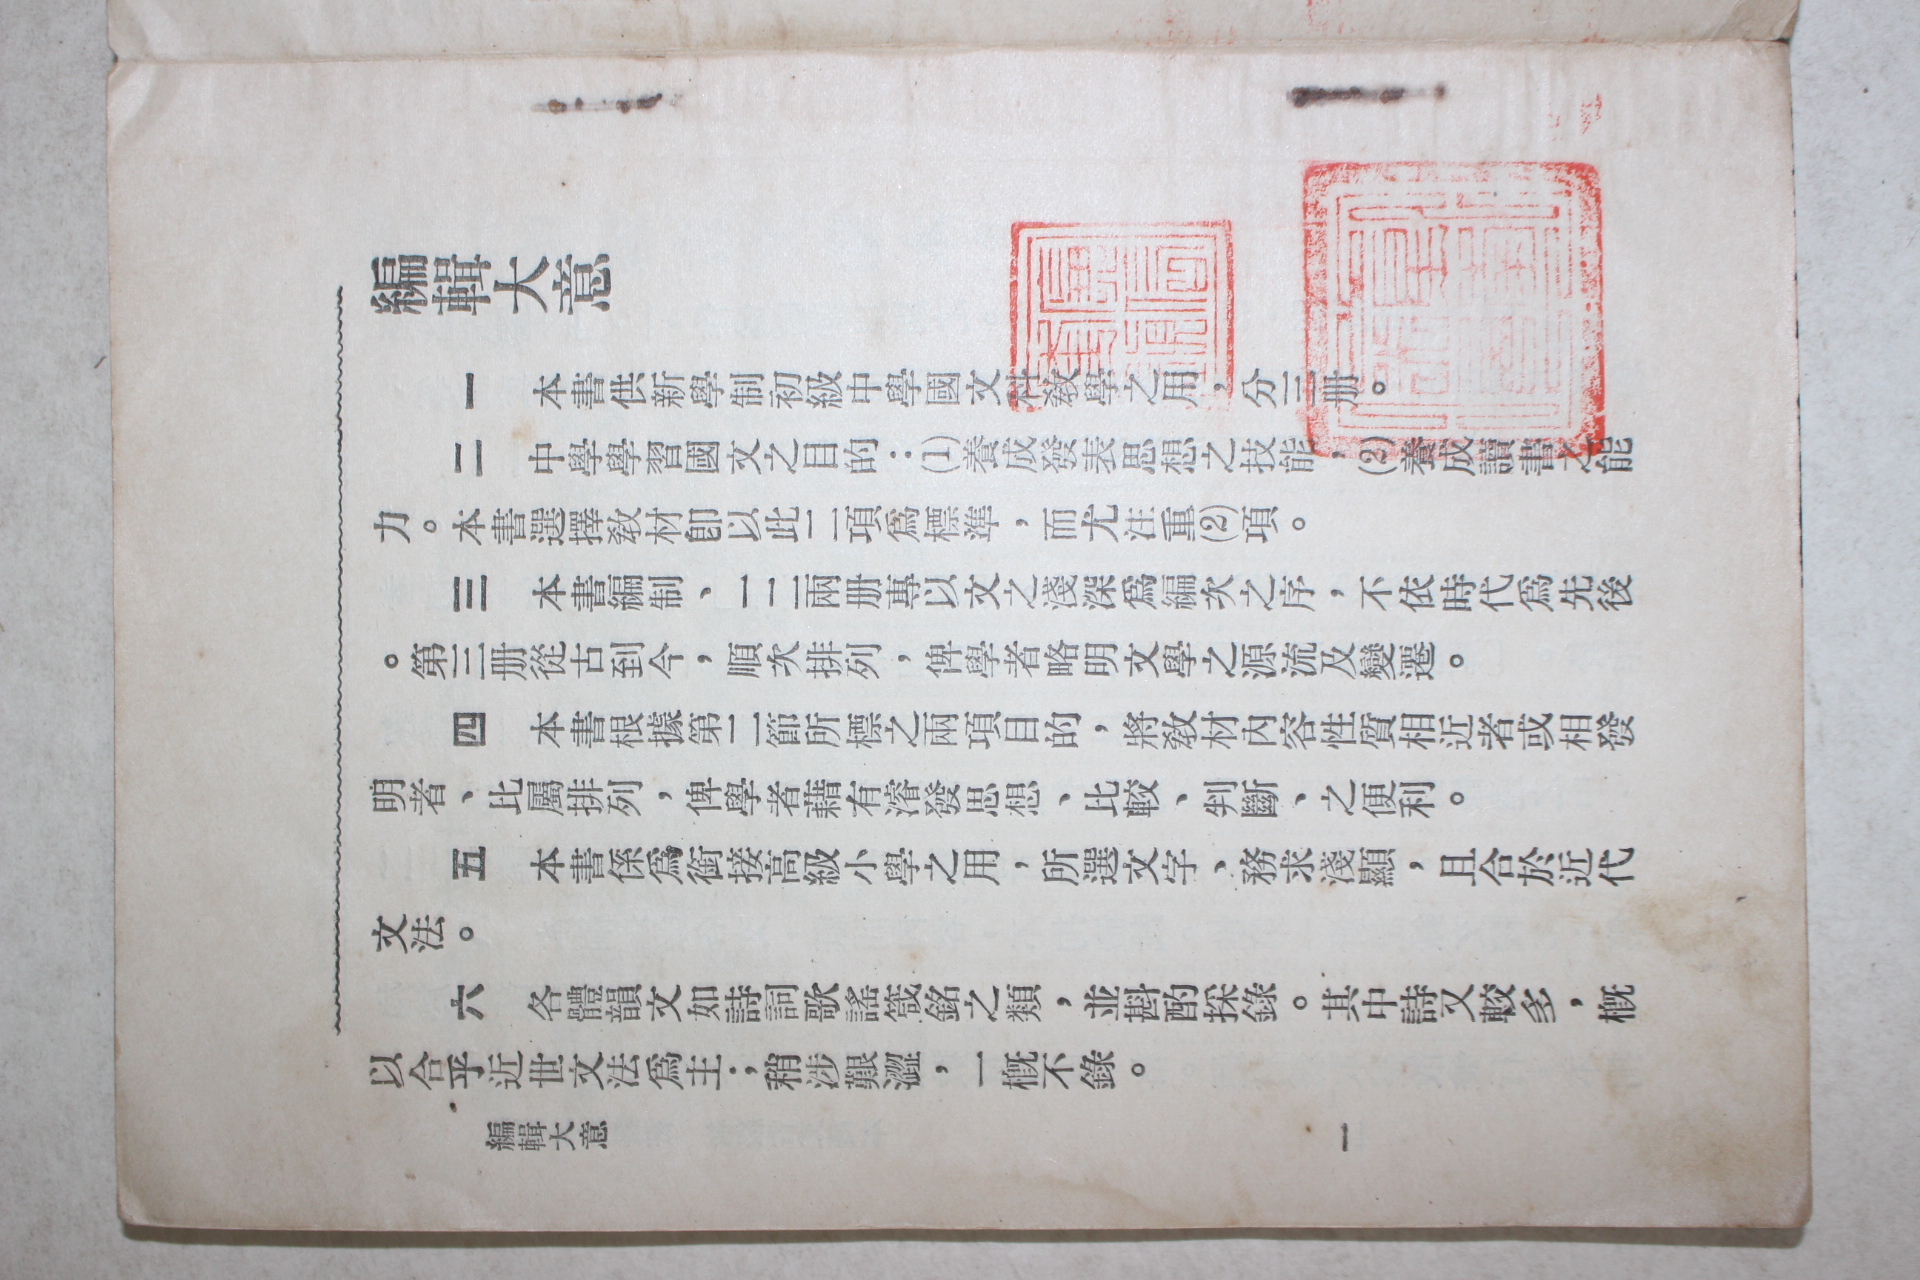 編輯大意
一　本書供新學制初級中學國文科教學之用，分三册。
二　中學學習國文之目的：(1)養成發表思想之技能，(2)養成讀書之能
力。本書選擇教材卽以此二項爲標準，而尤注重(2)項。
三　本書編制、一二兩册專以文之淺深爲編次之序，不依時代爲先後
。第三册從古到今，順次排列，俾學者略明文學之源流及變遷。
四　本書根據第二節所標之兩項目的，將教材內容性質相近者或相發
明者、比屬排列，俾學者藉有濬發思想、比較、判斷、之便利。
五　本書係爲銜接高級小學之用，所選文字、務求淺顯，且合於近代
文法。
六　各體韻文如詩詞歌謠箴銘之類，並斟酌採錄。其中詩又較多，概
以合乎近世文法爲主；稍涉艱澀，一概不錄。
編輯大意
一